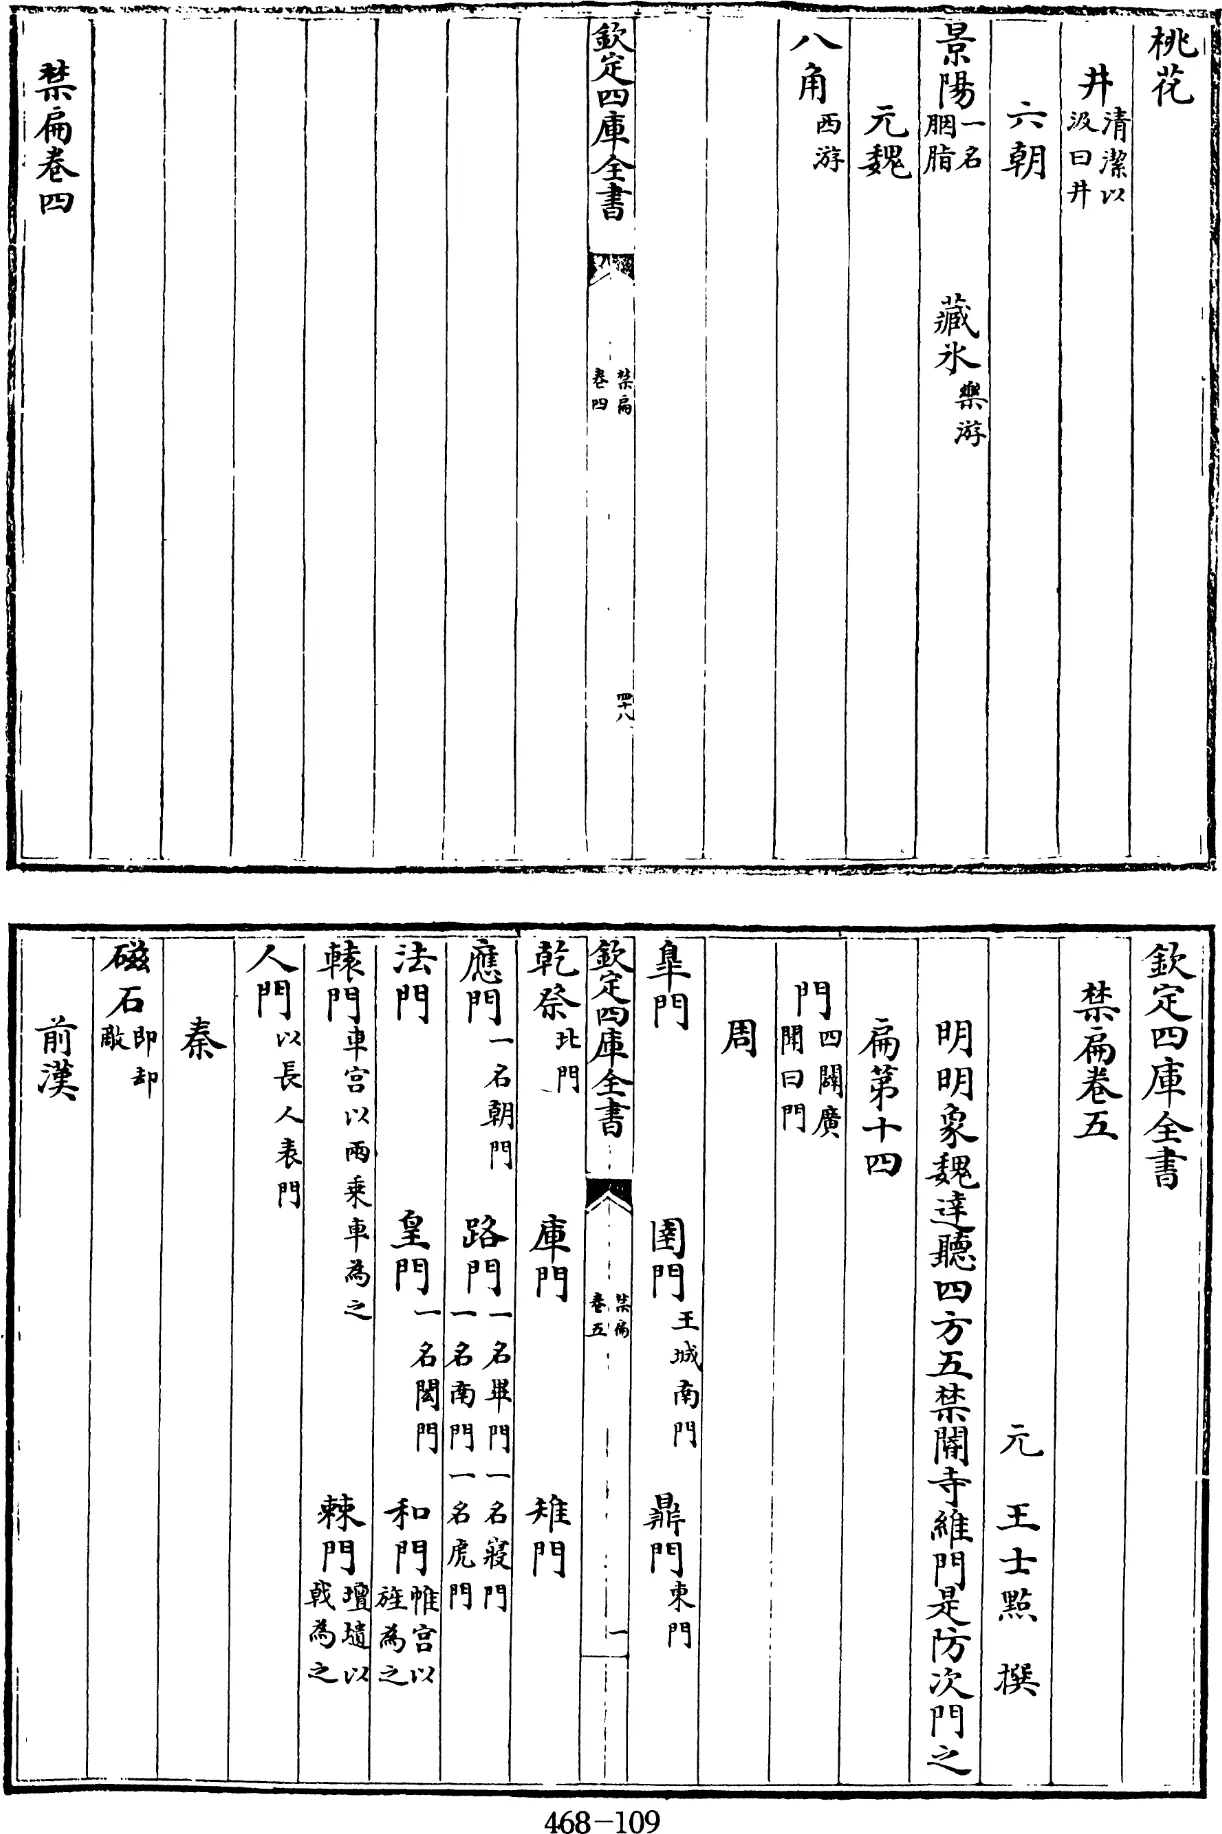 桃花
井清潔以汲曰井
六朝
景陽一名胭脂 藏氷樂游
元魏
八角西游
欽定四庫全書 禁扁卷四 四十八
禁扁卷四
欽定四庫全書
禁扁卷五
元 王士點 撰
明明象魏達聽四方五禁闈寺維門是防次門之
扁第十四
門四闢廣開曰門
周
臯門 圉門王城南門 鼎門東門
欽定四庫全書 禁扁卷五 一
乾祭北門 庫門 雉門
應門一名朝門 路門一名畢門一名寢門一名南門一名虎門
法門 皇門一名閎門 和門帷宫以旌為之
轅門車宫以兩乗車為之 棘門壇壝以戟為之
人門以長人表門
秦
磁石即却敵
前漢
468-109